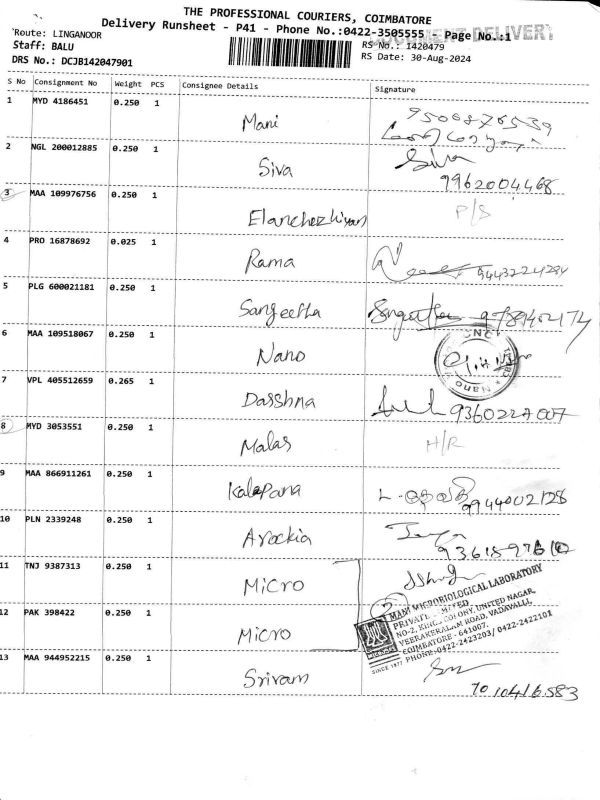 THE PROFESSIONAL COURIERS, COIMBATORE
Delivery Runsheet - P41 - Phone No.:0422-3505555 - Page No.:1
DOCUMENT DELIVERY
Route: LINGANOOR
Staff: BALU
DRS No.: DCJB142047901
RS No.: 1420479
RS Date: 30-Aug-2024
S No Consignment No Weight PCS Consignee Details Signature
1 MYD 4186451 0.250 1 Mani
2 NGL 200012885 0.250 1 Siva Siva
9962004468
3 MAA 109976756 0.250 1 Elanchezhiyan P/S
4 PRO 16878692 0.025 1 Rama 9443224294
5 PLG 600021181 0.250 1 Sangeetha Sangeetha
6 MAA 109518067 0.250 1 Nano
7 VPL 405512659 0.265 1 Dasshna 9360227007
8 MYD 3053551 0.250 1 Malas H/R
9 MAA 866911261 0.250 1 Kalapana 9944002128
10 PLN 2339248 0.250 1 Arockia
11 TNJ 9387313 0.250 1 Micro
12 PAK 398422 0.250 1 Micro
2
MANI MICROBIOLOGICAL LABORATORY
PRIVATE LIMITED
NO-2, KING COLONY, UNITED NAGAR,
VEERAKERALAM ROAD, VADAVALLI,
COIMBATORE - 641007.
PHONE:0422-2423203/ 0422-2422101
SINCE 1977
13 MAA 944952215 0.250 1 Sriram
7010416583